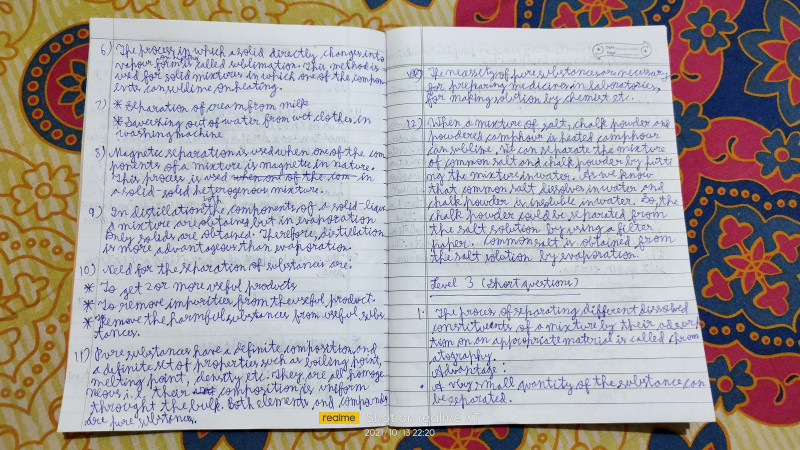 6) The process in which a solid directly changes into
vapour form on heating is called sublimation. This method is
used for solid mixtures in which one of the compon
ents can sublime on heating.
7) * Separation of cream from milk
* Squeezing out of water from wet clothes in
washing machine
8) Magnetic separation is used when one of the com
ponents of a mixture is magnetic in nature.
This process is used when one of the com in
a solid-solid heterogenous mixture.
9) In distillation both the components of a solid-liqui
d mixture are obtained, but in evaporation
only solids are obtained. Therefore, distillation
is more advantageous than evaporation.
10) Need for the separation of substances are:
* To get 2 or more useful products
* To remove impurities from the useful product.
* Remove the harmful substances from useful subs
tances.
11) Pure substances have a definite composition and
a definite set of properties such as boiling point,
melting point, density etc. They are all homoge
neous, i.e, their composition is uniform
throught the bulk. Both elements, and compounds
are pure substances.
The necessity of pure substances are necessary
for preparing medicines in laboratories,
for making solution by chemist etc.
12) When a mixture of salt, chalk powder and
powdered camphour is heated camphour
can sublime. We can separate the mixture
of common salt and chalk powder by putti
ng the mixture in water. As we know
that common salt dissolves in water and
chalk powder is insoluble in water. So, the
chalk powder could be separated from
the salt solution by using a filter
paper. Common salt is obtained from
the salt solution by evaporation.
Level 3 (Short questions)
1. The proces of separating different dissolved
constituents of a mixture by their adsorp
tion on an appropricate material is called Crom
atography.
Advantage:
• A very small quantity of the substance can
be separated.
realme Shot on realme XT
2021/10/13 22:20